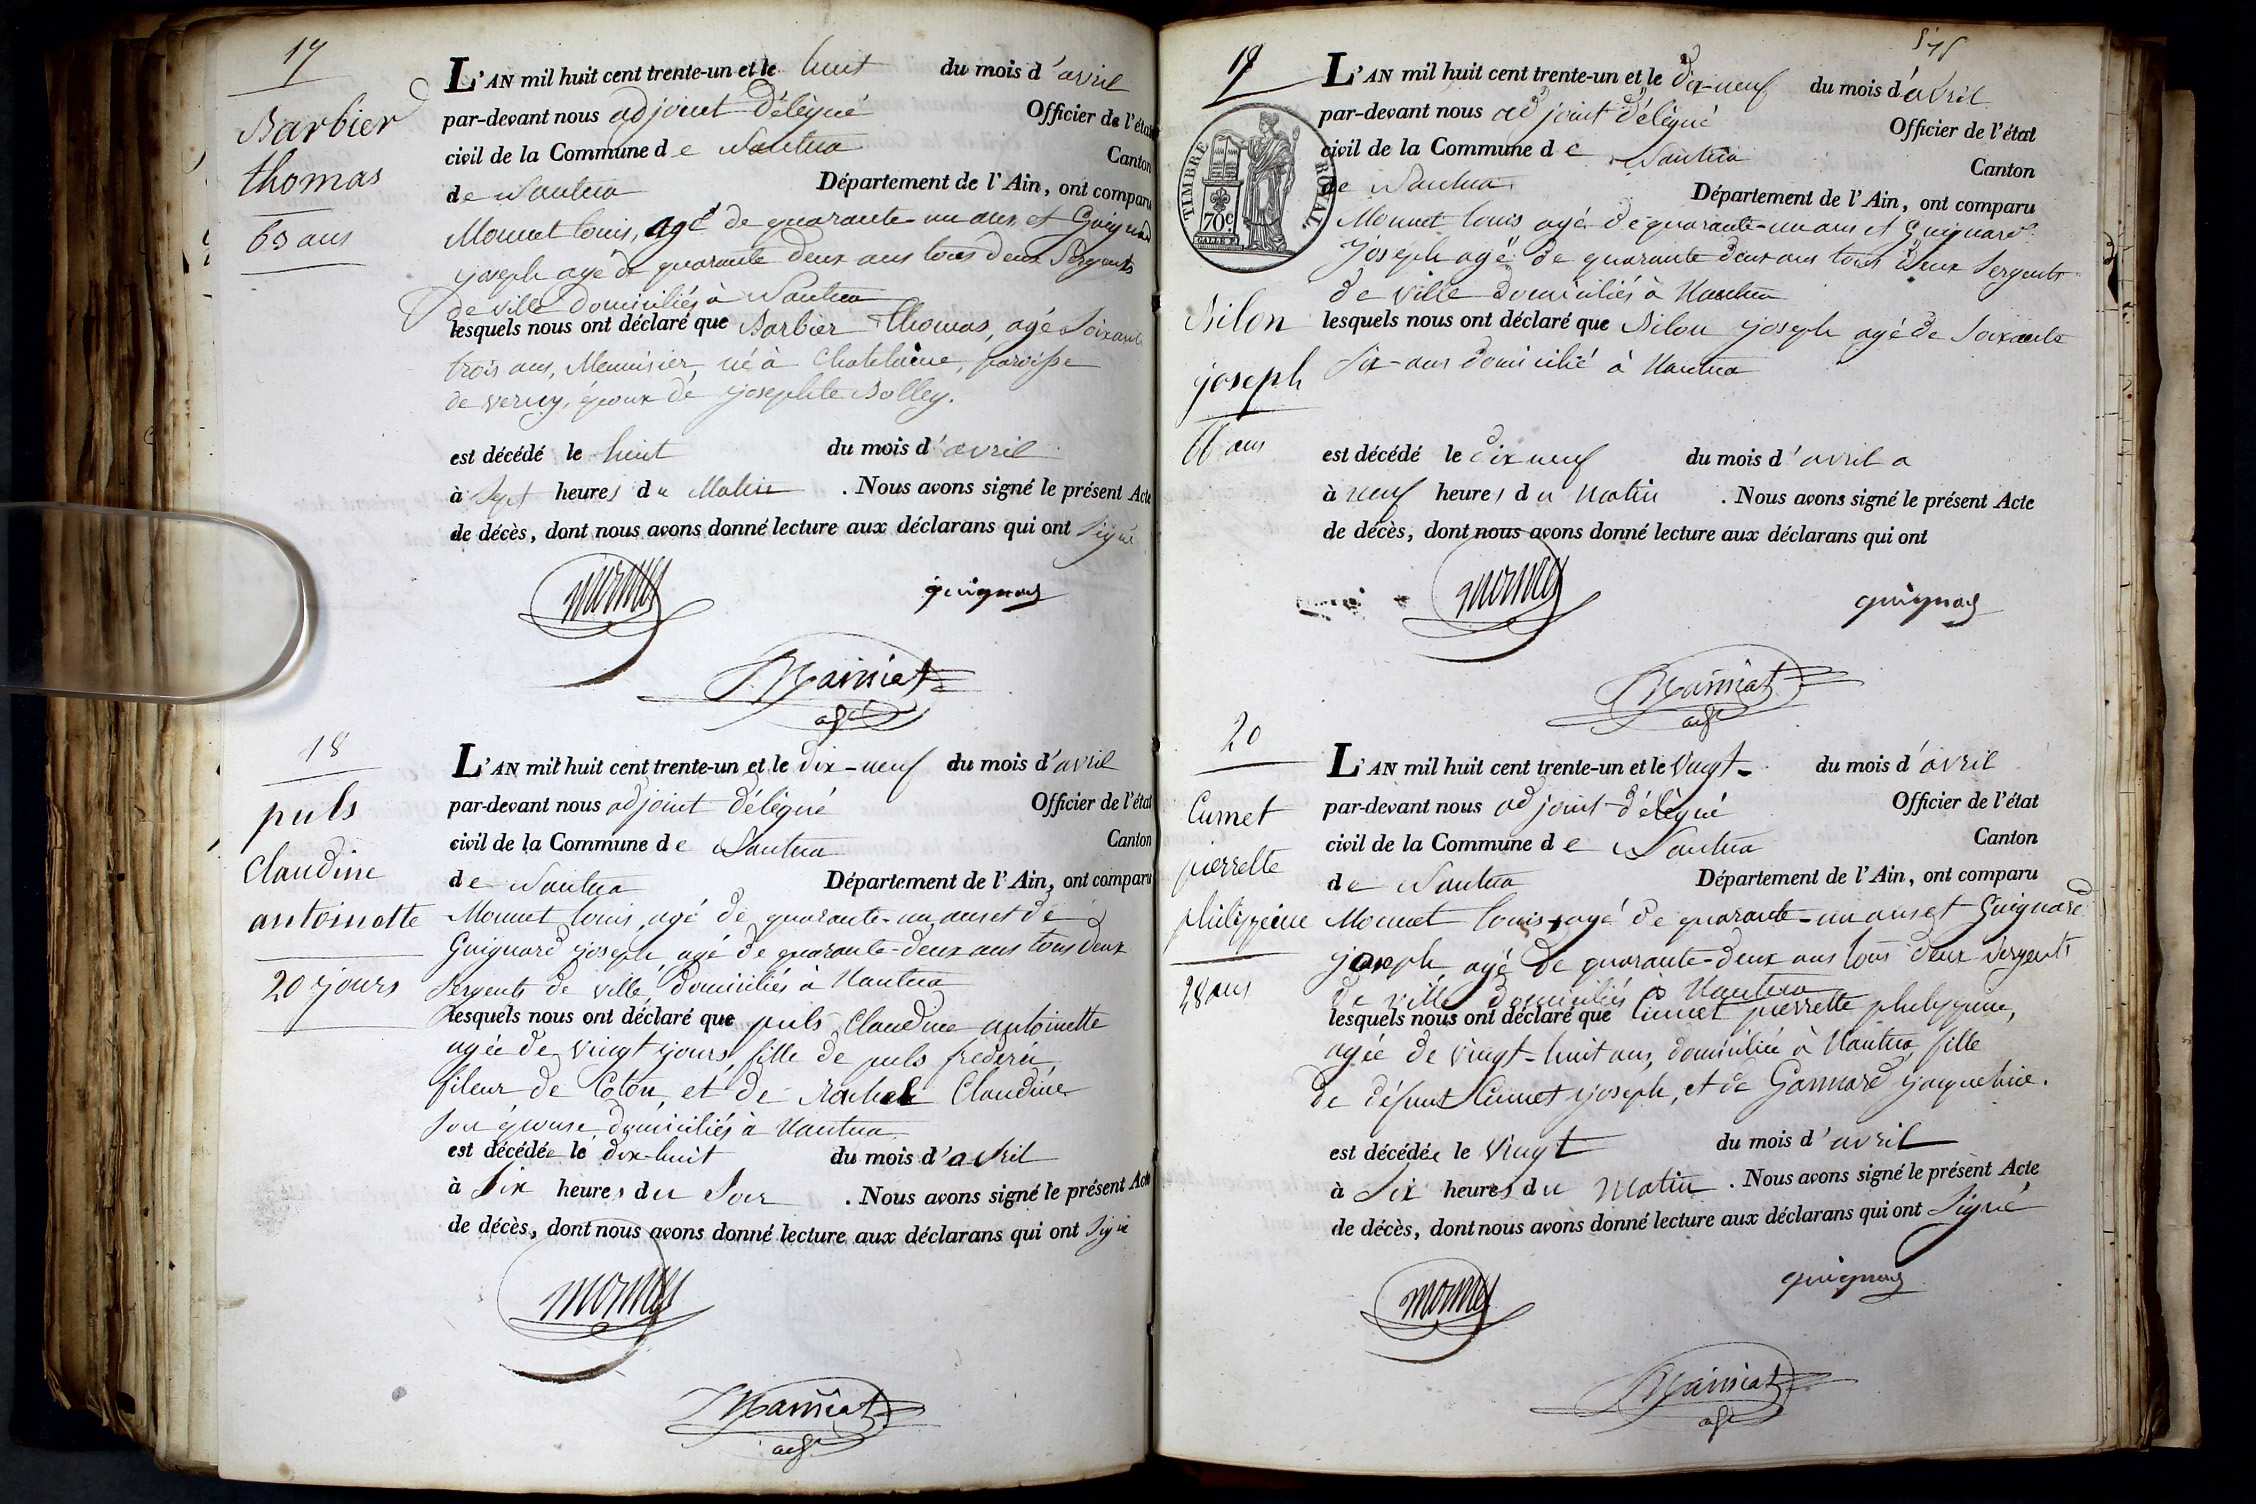 17
Barbier
thomas
63 ans
L'AN mil huit cent trente-un et le huit du mois d'avril
par-devant nous adjoint délégué Officier de l'état
civil de la Commune de Nantua Canton
de Nantua Département de l'Ain, ont comparu
Mornet Louis, agé de quarante-un ans et Guignard
joseph agé de quarante deux ans tous deux Sergents
de ville domiciliés à Nantua
lesquels nous ont déclaré que Barbier Thomas, agé Soixante
trois ans, Menuisier, né à Chatelaine, paroisse
de verny, époux de josephte Bolley.
est décédé le huit du mois d'avril
à Sept heures du Matin . Nous avons signé le présent Acte
de décès, dont nous avons donné lecture aux déclarans qui ont signé
mornet
guignard
adjt
18
puls
Claudine
antoinette
20 jours
L'AN mil huit cent trente-un et le dix-neuf du mois d'avril
par-devant nous adjoint délégué Officier de l'état
civil de la Commune de Nantua Canton
de Nantua Département de l'Ain, ont comparu
Mornet Louis, agé de quarante-un ans et de
Guignard joseph, agé de quarante-deux ans tous deux
Sergents de ville, domiciliés à Nantua
lesquels nous ont déclaré que puls Claudine antoinette
agée de vingt jours, fille de puls frederic,
fileur de Coton, et de Claudine
son épouse domiciliés à Nantua
est décédée le dix-huit du mois d'avril
à Six heures du Soir . Nous avons signé le présent Acte
de décès, dont nous avons donné lecture aux déclarans qui ont signé
mornet
adjt
19
TIMBRE ROYAL
70c
Bilon
joseph
66 ans
L'AN mil huit cent trente-un et le dix-neuf du mois d'avril
par-devant nous adjoint délégué Officier de l'état
civil de la Commune de Nantua Canton
de Nantua Département de l'Ain, ont comparu
Mornet Louis agé de quarante-un ans et Guignard
Joseph agé de quarante deux ans tous deux Sergents
de ville domiciliés à Nantua
lesquels nous ont déclaré que Bilon joseph agé de Soixante
Six-ans domicilié à Nantua
est décédé le dix neuf du mois d'avril a
à neuf heures du Matin . Nous avons signé le présent Acte
de décès, dont nous avons donné lecture aux déclarans qui ont
mornet
guignard
adjt
20
Cumet
pierrette
philippine
28 ans
L'AN mil huit cent trente-un et le Vingt- du mois d'avril
par-devant nous adjoint délégué Officier de l'état
civil de la Commune de Nantua Canton
de Nantua Département de l'Ain, ont comparu
Mornet Louis, agé de quarante-un ans et Guignard
joseph, agé de quarante-deux ans tous deux Sergents
de ville domiciliés à Nantua
lesquels nous ont déclaré que Cumet pierrette philippine,
agée de vingt-huit ans, domiciliée à Nantua, fille
de défunt Cumet joseph, et de Gonnard jacqueline.
est décédée le Vingt du mois d'avril
à Six heures du Matin . Nous avons signé le présent Acte
de décès, dont nous avons donné lecture aux déclarans qui ont Signé
guignard
mornet
adjt